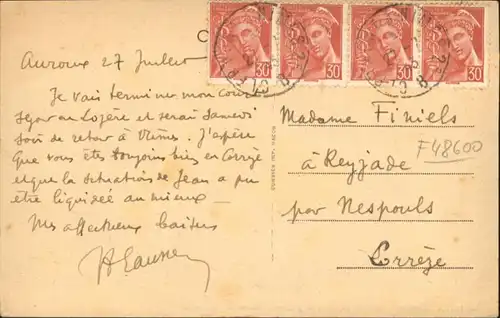 Auroux 27 Juillet
Je vais terminer mon court
séjour en Lozère et serai Samedi
soir de retour à Nîmes. J'espère
que vous êtes toujours bien en Corrèze
et que la situation de Jean a pu
être liquidée au mieux —
Mes affectueux baisers
30
30
30
30
Madame Finiels
à Reyjade
par Nespouls
Corrèze
F48600